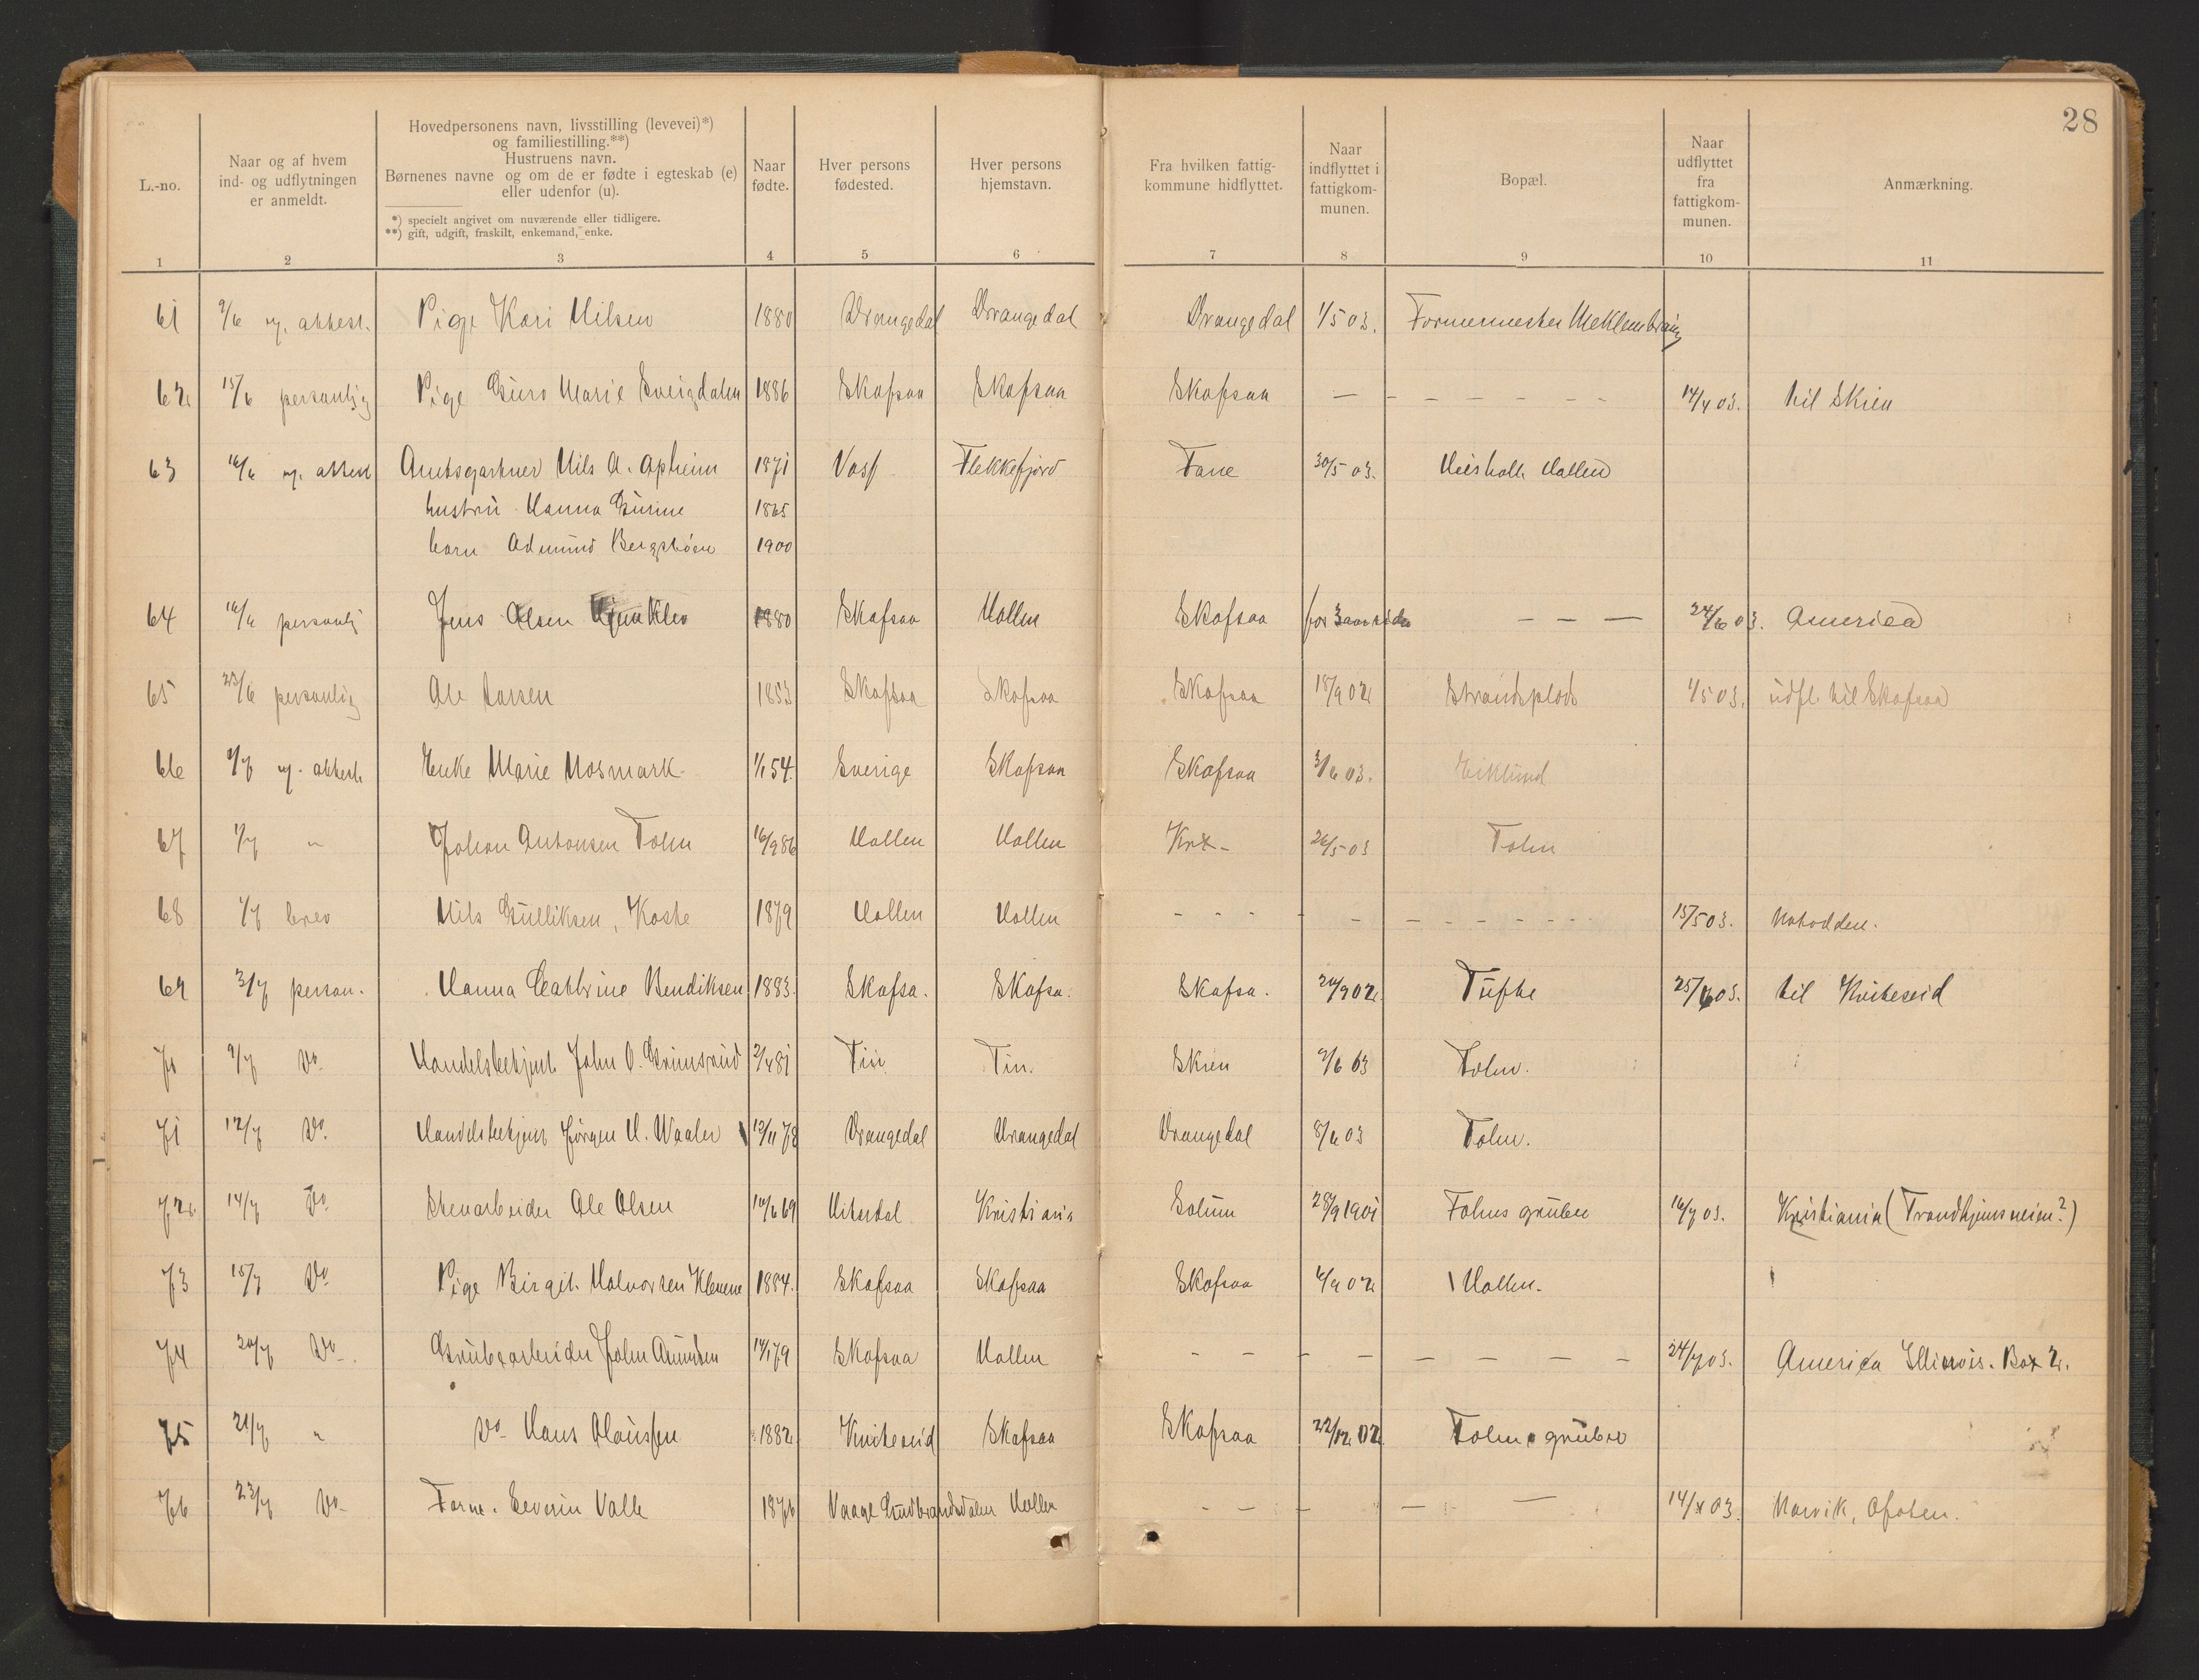 28
L.-no.
Naar og af hvem
ind- og udflytningen
er anmeldt.
Hovedpersonens navn, livsstilling (levevei)*)
og familiestilling.**)
Hustruens navn.
Børnenes navne og om de er fødte i egteskab (e)
eller udenfor (u).
*) specielt angivet om nuværende eller tidligere.
**) gift, udgift, fraskilt, enkemand, enke.
Naar
fødte.
Hver persons
fødested.
Hver persons
hjemstavn.
Fra hvilken fattig-
kommune hidflyttet.
Naar
indflyttet i
fattigkom-
munen.
Bopæl.
Naar
udflyttet
fra
fattigkom-
munen.
Anmærkning.
1 2 3 4 5 6 7 8 9 10 11
61 9/6 attest. Pige Kari Nilsen 1880 Drangedal Drangedal Drangedal 1/5 03. Formermester Meklenburg
62 15/6 personlig Pige Guro Marie Sveigdalen 1886 Skafsaa Skafsaa Skafsaa — - - - - - - 14/4 03. til Skien
63 16/6 attest Amtsgartner Nils A. Apheim 1871 Voss Flekkefjord Fane 30/5 03. Holla
hustru Hanna Gurine 1865
barn Admund 1900
64 16/6 personlig Jens Olsen 1880 Skafsaa Hollen Skafsaa for 3 aar siden — — — 24/6 03. America
65 23/6 personlig Ole Larsen 1853 Skafsaa Skafsaa Skafsaa 18/9 02 Strandsplads 1/5 03. udfl. til Skafsaa
66 1/7 attest Enke Marie Mosmark 1/1 54. Sverige Skafsaa Skafsaa 3/6 03. Eiklund
67 1/7 " Johan Antonsen Tolin 16/9 86 Hollen Hollen 26/5 03
68 1/7 brev Nils Gulliksen, Kaste 1879 Hollen Hollen - - - - - - - - - 15/5 03. Notodden.
69 3/7 person. Hanna Cathrine Bendiksen 1883. Skafsa. Skafsa. Skafsa. 24/9 02. Tufte 25/6 03. til Kviteseid
70 9/7 Do. Handelsbetjent John O. Grimsrud 2/4 81 Tin Tin. Skien 9/6 03
71 12/7 Do. Handelsbetjent Jørgen H. Waaler 12/11 78 Drangedal Drangedal Drangedal 8/6 03
72. 14/7 Do Stenarbeider Ole Olsen 10/6 69 Hiterdal Kristiania Solum 28/9 1901 gruber 16/7 03. Kristiania (Trondhjemsveien?)
73 15/7 Do Pige Birgit Halvorsen Klevene 1884. Skafsaa Skafsaa Skafsaa 4/9 02 Hollen.
74 20/7 Do. Grubearbeider John Amundsen 14/1 79 Skafsaa Hollen - - - - - - - - - 24/7 03. America Illinois. Box 2.
75 21/7 " Do Hans Olaussen 1882 Kviteseid Skafsaa Skafsaa 22/12 02. gruber
76 23/7 Do Severin Valle 1876 Vaage Gudbrandsdalen Hollen - - - - - 14/8 03. Narvik, Ofoten.